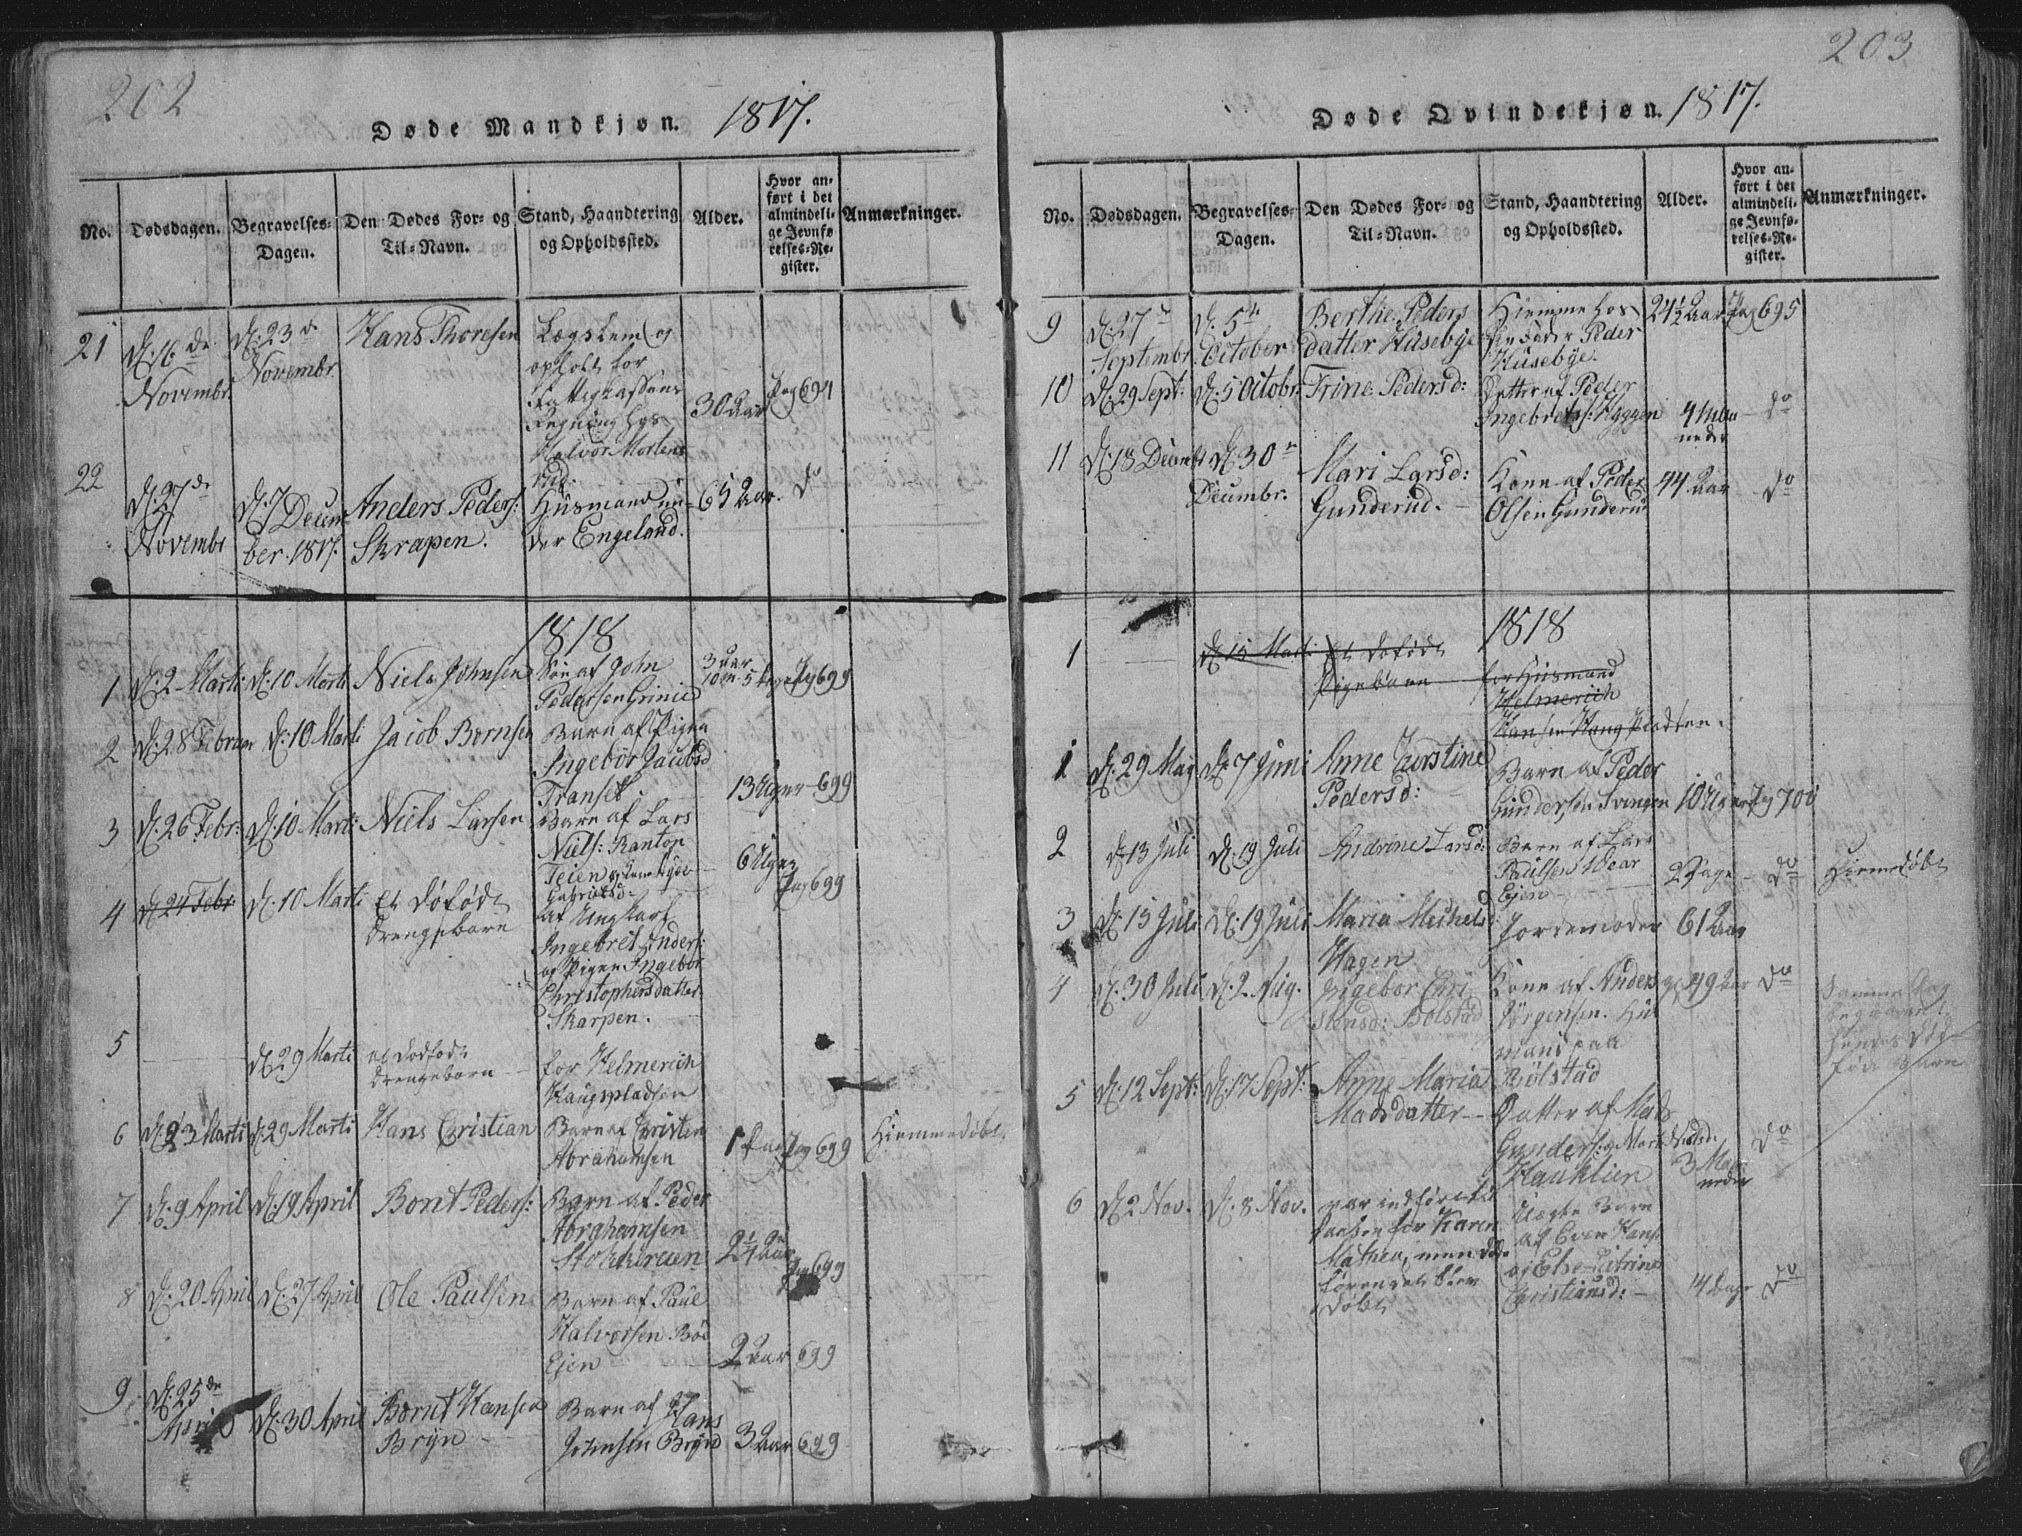 202
Døde Mandkjøn. 1817.
No.
Dødsdagen.
Begravelses-
Dagen.
Den Dødes For- og
Til-Navn.
Stand, Haandtering
og Opholdssted.
Alder.
Hvor an-
ført i det
almindeli-
ge Jevnfø
relses-Re-
gister.
Anmærkninger.
21
D: 16de
Novembr.
D: 23de
Novembr.
Hans Thoresen
Lægslem og
opholdt for
Fattigkassens
Regning hos
Halvor Mortens
rud.
30 Aar
Pag 694
22
D: 27de
Novembr
D: 7 Decem
ber. 1817.
Anders Peders:
Skrapen.
Huusmand un-
der Engelund.
65 Aar.
Do
1818
1
D: 2 Marti
D: 10 Marti
Niels Johnsen
Søn af John
Pedersen Grinie
3 aar
10 m. 5 dage
Pag 699
2
D: 28 Februar
D: 10 Marti
Jacob Bernsen
Barn af Pigen
Ingebor Jacobsd
Transet.
13 Uger
699
3
D: 26 Febr:
D: 10 Marti
Niels Larsen
Barn af Lars
Niels: Kantop
Teien
Gabrielsd.
6 Uger
Pag 699
4
D: 24 Febr:
D: 10 Marti
Et Døfødt
Drengebarn
af Ungkarl
Ingebret Anders:
og Pigen Ingebor
Christophersdatter
Skarpen.
5
D: 29 Marti
et Dødfødt
Drengebarn
for Helmerich
Haugspladsen
6
D: 23 Marti
D: 29 Marti
Hans Cristian
Barn af Cristen
Abrahamsen
1 Dag
Pag 699
Hiemmedøbt
7
D: 9 April
D: 19 April
Bernt Peders:
Barn af Peder
Abrahamsen
Stokkeruen
2¼ Aar
Pag 699
8
D: 20 April
D: 27 April
Ole Paulsen
Barn af Paul
Halvorsen Bøe
Ejen
2 Aar
699
9
D: 25de
April
D: 30 April
Bernt Hansen
Bryn
Barn af Hans
Johnsen Bryn
3 Aar
699
203
Døde Qvindekjøn. 1817.
No.
Dødsdagen.
Begravelses-
Dagen.
Den Dødes For- og
Til-Navn.
Stand, Haandtering
og Opholdssted.
Alder.
Hvor an-
ført i det
almindeli-
ge Jevnfø-
relses-Re-
gister.
Anmærkninger.
9
D: 27de
Septembr
D: 5te
October
Berthe Peders
datter Husebye
Hiemme hos
sin Fader Peder
Husebye.
24½ Aar
Pag 695
10
D: 29 Sept:
D: 5 Octobr
Trine Pedersd:
Datter af Peder
Ingebrets: Hyggen
4 Maa
neder
Do
11
D: 18 Decembr
D: 30te
Decembr.
Mari Larsd:
Gunderud.
Kone af Peder
Olsen Gunderud
44 Aar
Do
1818
1
D: 15 Marti
et døfødt
Pigebarn
for Huusmand
Helmerich
Hansen Haugspladsen.
1
D: 29 May
D: 7 Juni
Anne Kirstine
Pedersd:
Barn af Peder
Gundersen Svingen
10 Uger
Pag 700
2
D: 13 Juli
D: 19 Juli
Andrine Larsd:
Barn af Lars
Paulsen Wear
Ejen
2 Dage
Do
Hiemedøbt
3
D: 15 Juli
D: 19 Juli
Maria Michelsd
Hagen
Jordemoder
61 Aar
4
D: 30 Juli
D: 2 Aug.
Ingebor Chri
stensd: Bolstad
Kone af Anders
Jørgensen. Hus
mand paa
Bølstad
49 Aar
Do
Samme Dag
begravet
hendes død
født Barn
5
D: 12 Sept:
D: 17 Sept:
Anne Maria
Madsdatter
Datter af Mads
Gunders: og Mari Nielsd:
Hauklien
3 Maa
neder
Do
6
D: 2 Nov.
D: 8 Nov.
var indført til
Daaben for Karen
Mathea, men døde
før end det blev
døbt
Uægte Barn
af Even Hans:
og Else Catrine
Christiansd:
14 Dage
Do